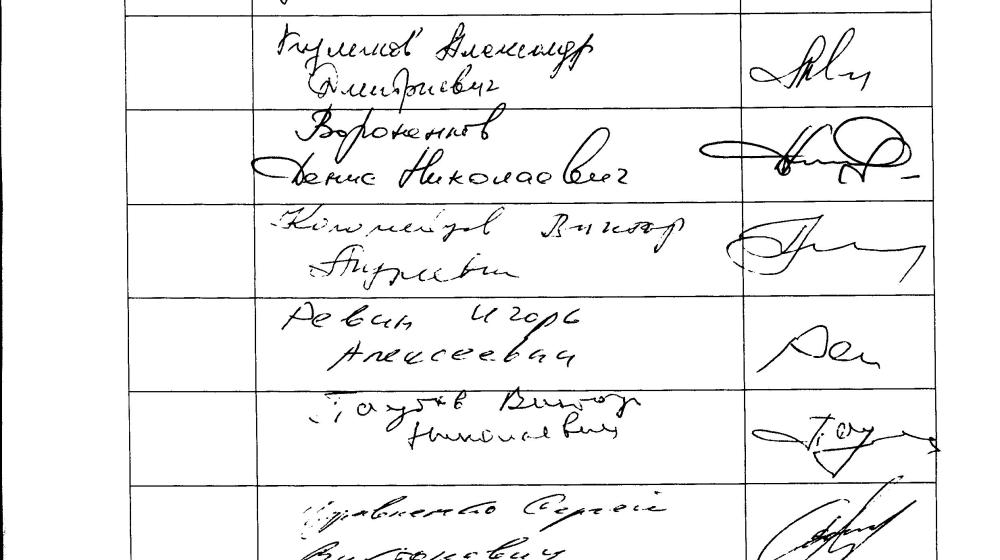 Куликов Александр
Дмитриевич
Вороненков
Денис Николаевич
Коломейцев Виктор
Андреевич
Ревин Игорь
Алексеевич
Виктор
Николаевич
Сергей
Викторович